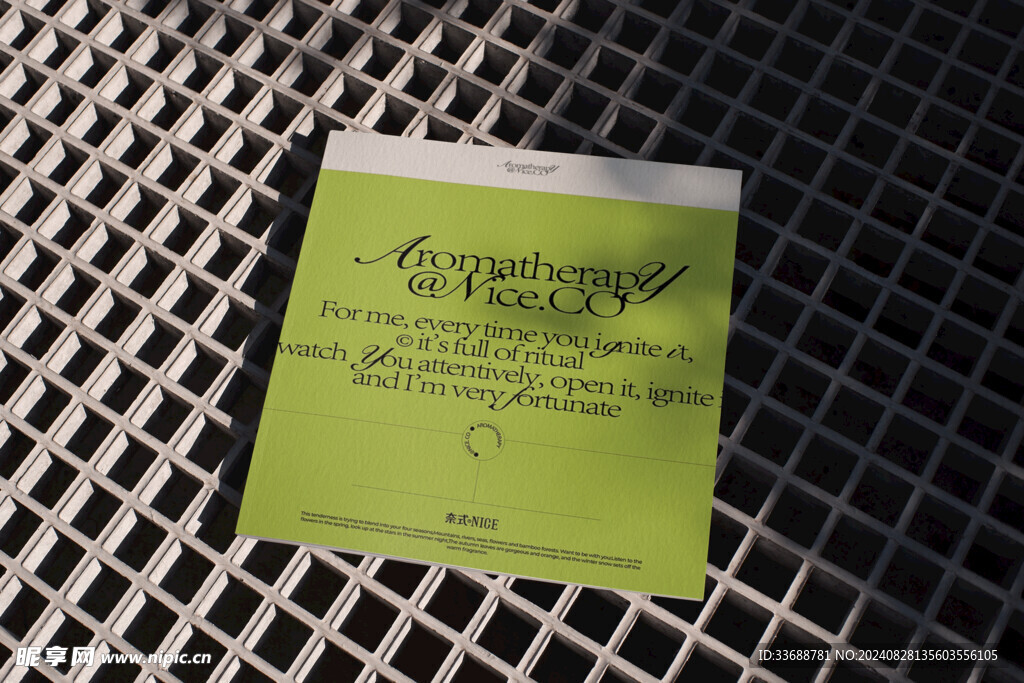 Aromatherapy
@Nice.CO
Aromatherapy
@Nice.CO
For me, every time you ignite it,
© it's full of ritual
watch You attentively, open it, ignite
and I'm very fortunate
AROMATHERAPY
奈式 NICE
This tenderness is trying to blend into your four seasons.Mountains, rivers, seas, flowers and bamboo forests. Want to be with you.Listen to the
flowers in the spring, look up at the stars in the summer night,The autumn leaves are gorgeous and orange, and the winter snow sets off the
warm fragrance.
昵享网 www.nipic.cn
ID:33688781 NO:20240828135603556105